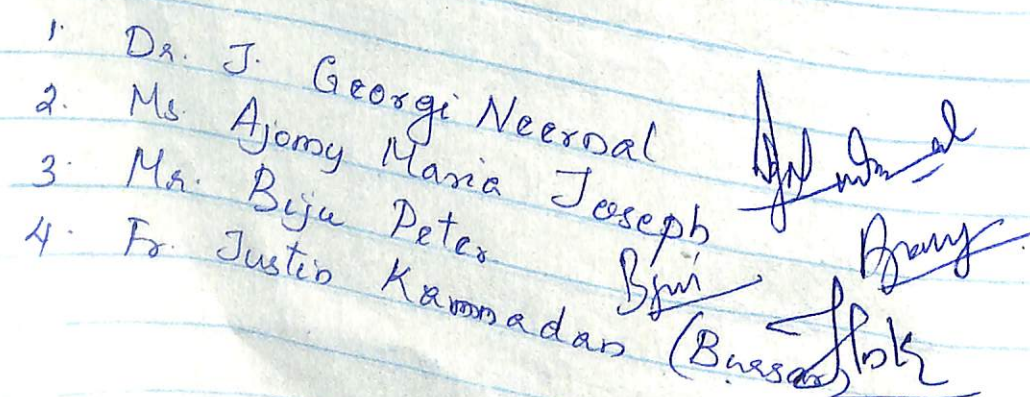 1. Dr. J. Georgi Neernal
2. Ms. Ajomy Maria Joseph
3. Mr. Biju Peter Biju
4. Fr. Justin Kannadan (Bursar)